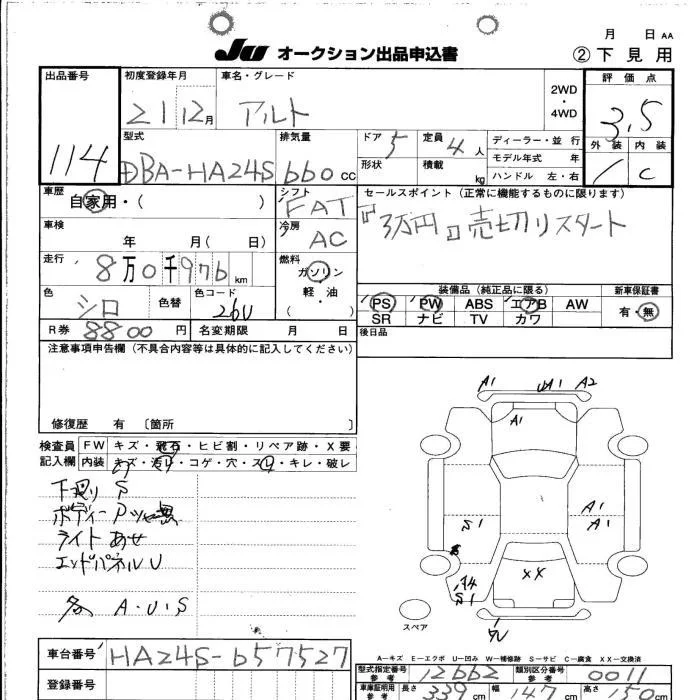 月 日 AA
JU オークション出品申込書 ② 下見用
出品番号 初度登録年月 車名・グレード 評価点
114 21 12月 アルト 2WD・4WD 3.5
型式 排気量 ドア 定員 ディーラー・並行 外装 内装
DBA-HA24S 660cc 5 4人 モデル年式 年 1 C
形状 積載 kg ハンドル 左・右
車歴 自家用・( ) シフト FAT セールスポイント(正常に機能するものに限ります)
車検 年 月( 日) 冷房 AC 『3万円』売切りスタート
走行 8万0千976km 燃料 ガソリン
軽・油
( )
色 シロ 色替 色コード 26U
装備品(純正品に限る) 新車保証書
PS PW ABS エアB AW 有・無
SR ナビ TV カワ
R券 8800円 名変期限 月 日 後日品
注意事項申告欄(不具合内容等は具体的に記入してください)
修復歴 有 〔箇所 〕
検査員記入欄 FW キズ・飛石・ヒビ割・リペア跡・X要
内装 キズ・汚れ・コゲ・穴・スレ・キレ・破レ
下廻り S
ボディー
ライト あせ
エンドパネルU
A・U・S
A1 UA1 A2
A1
A1
A1
S1
XX
A4
S1
スペア
A-キズ E-エクボ U-凹み W-補修跡 S-サビ C-腐食 XX-交換済
車台番号 HA24S-657527
登録番号
型式指定番号 参考 12662 類別区分番号 参考 0011
車庫証明用 参考 長さ 339cm 幅 147cm 高さ 150cm